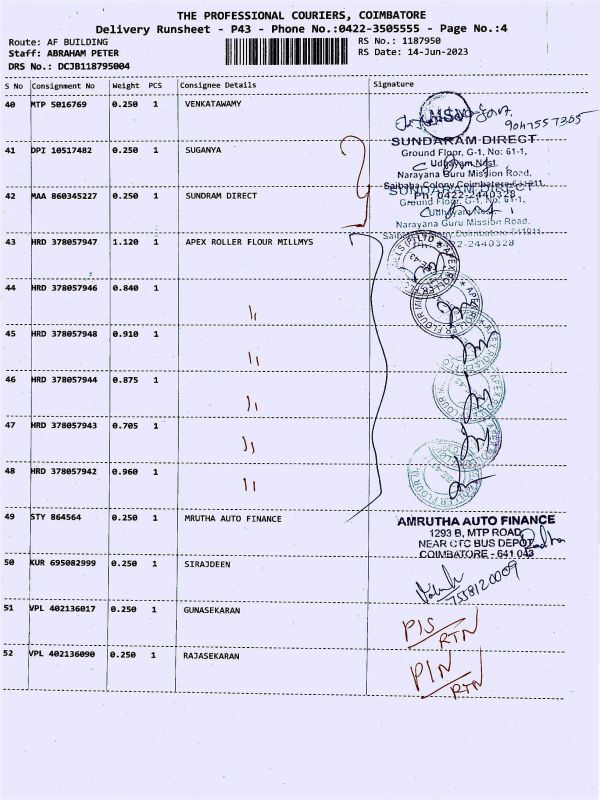 THE PROFESSIONAL COURIERS, COIMBATORE
Delivery Runsheet - P43 - Phone No.:0422-3505555 - Page No.:4
Route: AF BUILDING
Staff: ABRAHAM PETER
DRS No.: DCJB118795004
RS No.: 1187950
RS Date: 14-Jun-2023
S No Consignment No Weight PCS Consignee Details Signature
40 MTP 5016769 0.250 1 VENKATAWAMY
9047557305
41 DPI 10517482 0.250 1 SUGANYA
SUNDARAM DIRECT
Ground Floor, G-1, No: 61-1,
Udhayam Nest,
Narayana Guru Mission Road,
Saibaba Colony, Coimbatore-641011.
Ph: 0422-2440328
42 MAA 860345227 0.250 1 SUNDRAM DIRECT
SUNDARAM DIRECT
Ground Floor, G-1, No: 61-1,
Narayana Guru Mission Road,
43 HRD 378057947 1.120 1 APEX ROLLER FLOUR MILLMYS
44 HRD 378057946 0.840 1
45 HRD 378057948 0.910 1
46 HRD 378057944 0.875 1
47 HRD 378057943 0.705 1
48 HRD 378057942 0.960 1
49 STY 864564 0.250 1 MRUTHA AUTO FINANCE
AMRUTHA AUTO FINANCE
1293 B, MTP ROAD,
NEAR CTC BUS DEPOT,
COIMBATORE - 641 043
Radha
50 KUR 695082999 0.250 1 SIRAJDEEN
7558120009
51 VPL 402136017 0.250 1 GUNASEKARAN
PIS/RTN
52 VPL 402136090 0.250 1 RAJASEKARAN
PIN/RTN